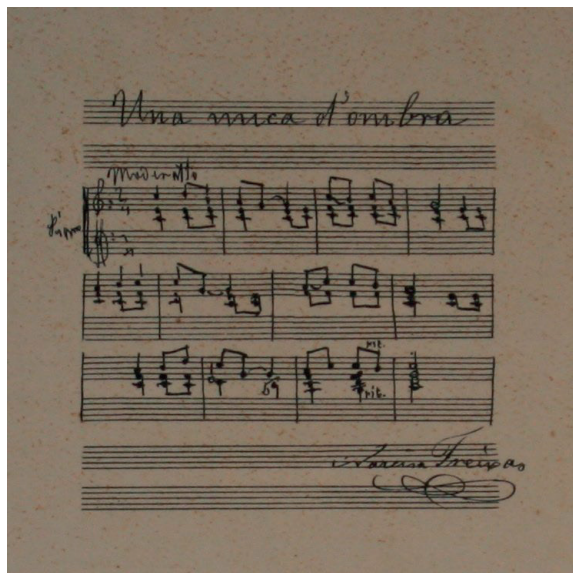 Una mica d'ombra
Moderatto
Piano
rit.
rit.
Narcisa Freixas